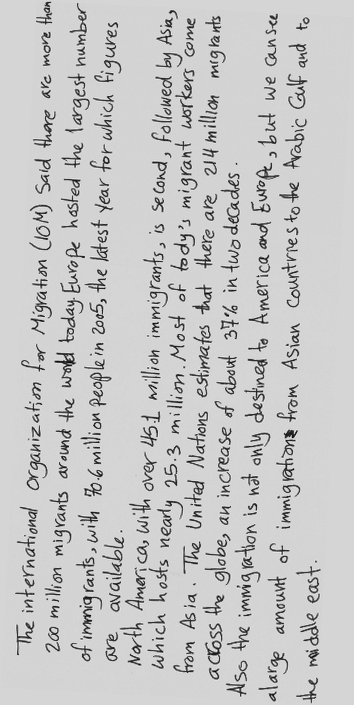 The international Organization for Migration (IOM) Said there are more than
200 million migrants around the world today. Europe hosted the largest number
of immigrants, with 70.6 million people in 2005, the latest year for which figures
are available.
North America, with over 45.1 million immigrants, is second, followed by Asia,
which hosts nearly 25.3 million. Most of tody's migrant workers come
from Asia. The United Nations estimates that there are 214 million migrants
across the globe, an increase of about 37% in two decades.
Also the immigration is not only destined to America and Europe, but we can see
a large amount of immigrations from Asian Countries to the Arabic Gulf and to
the middle east.